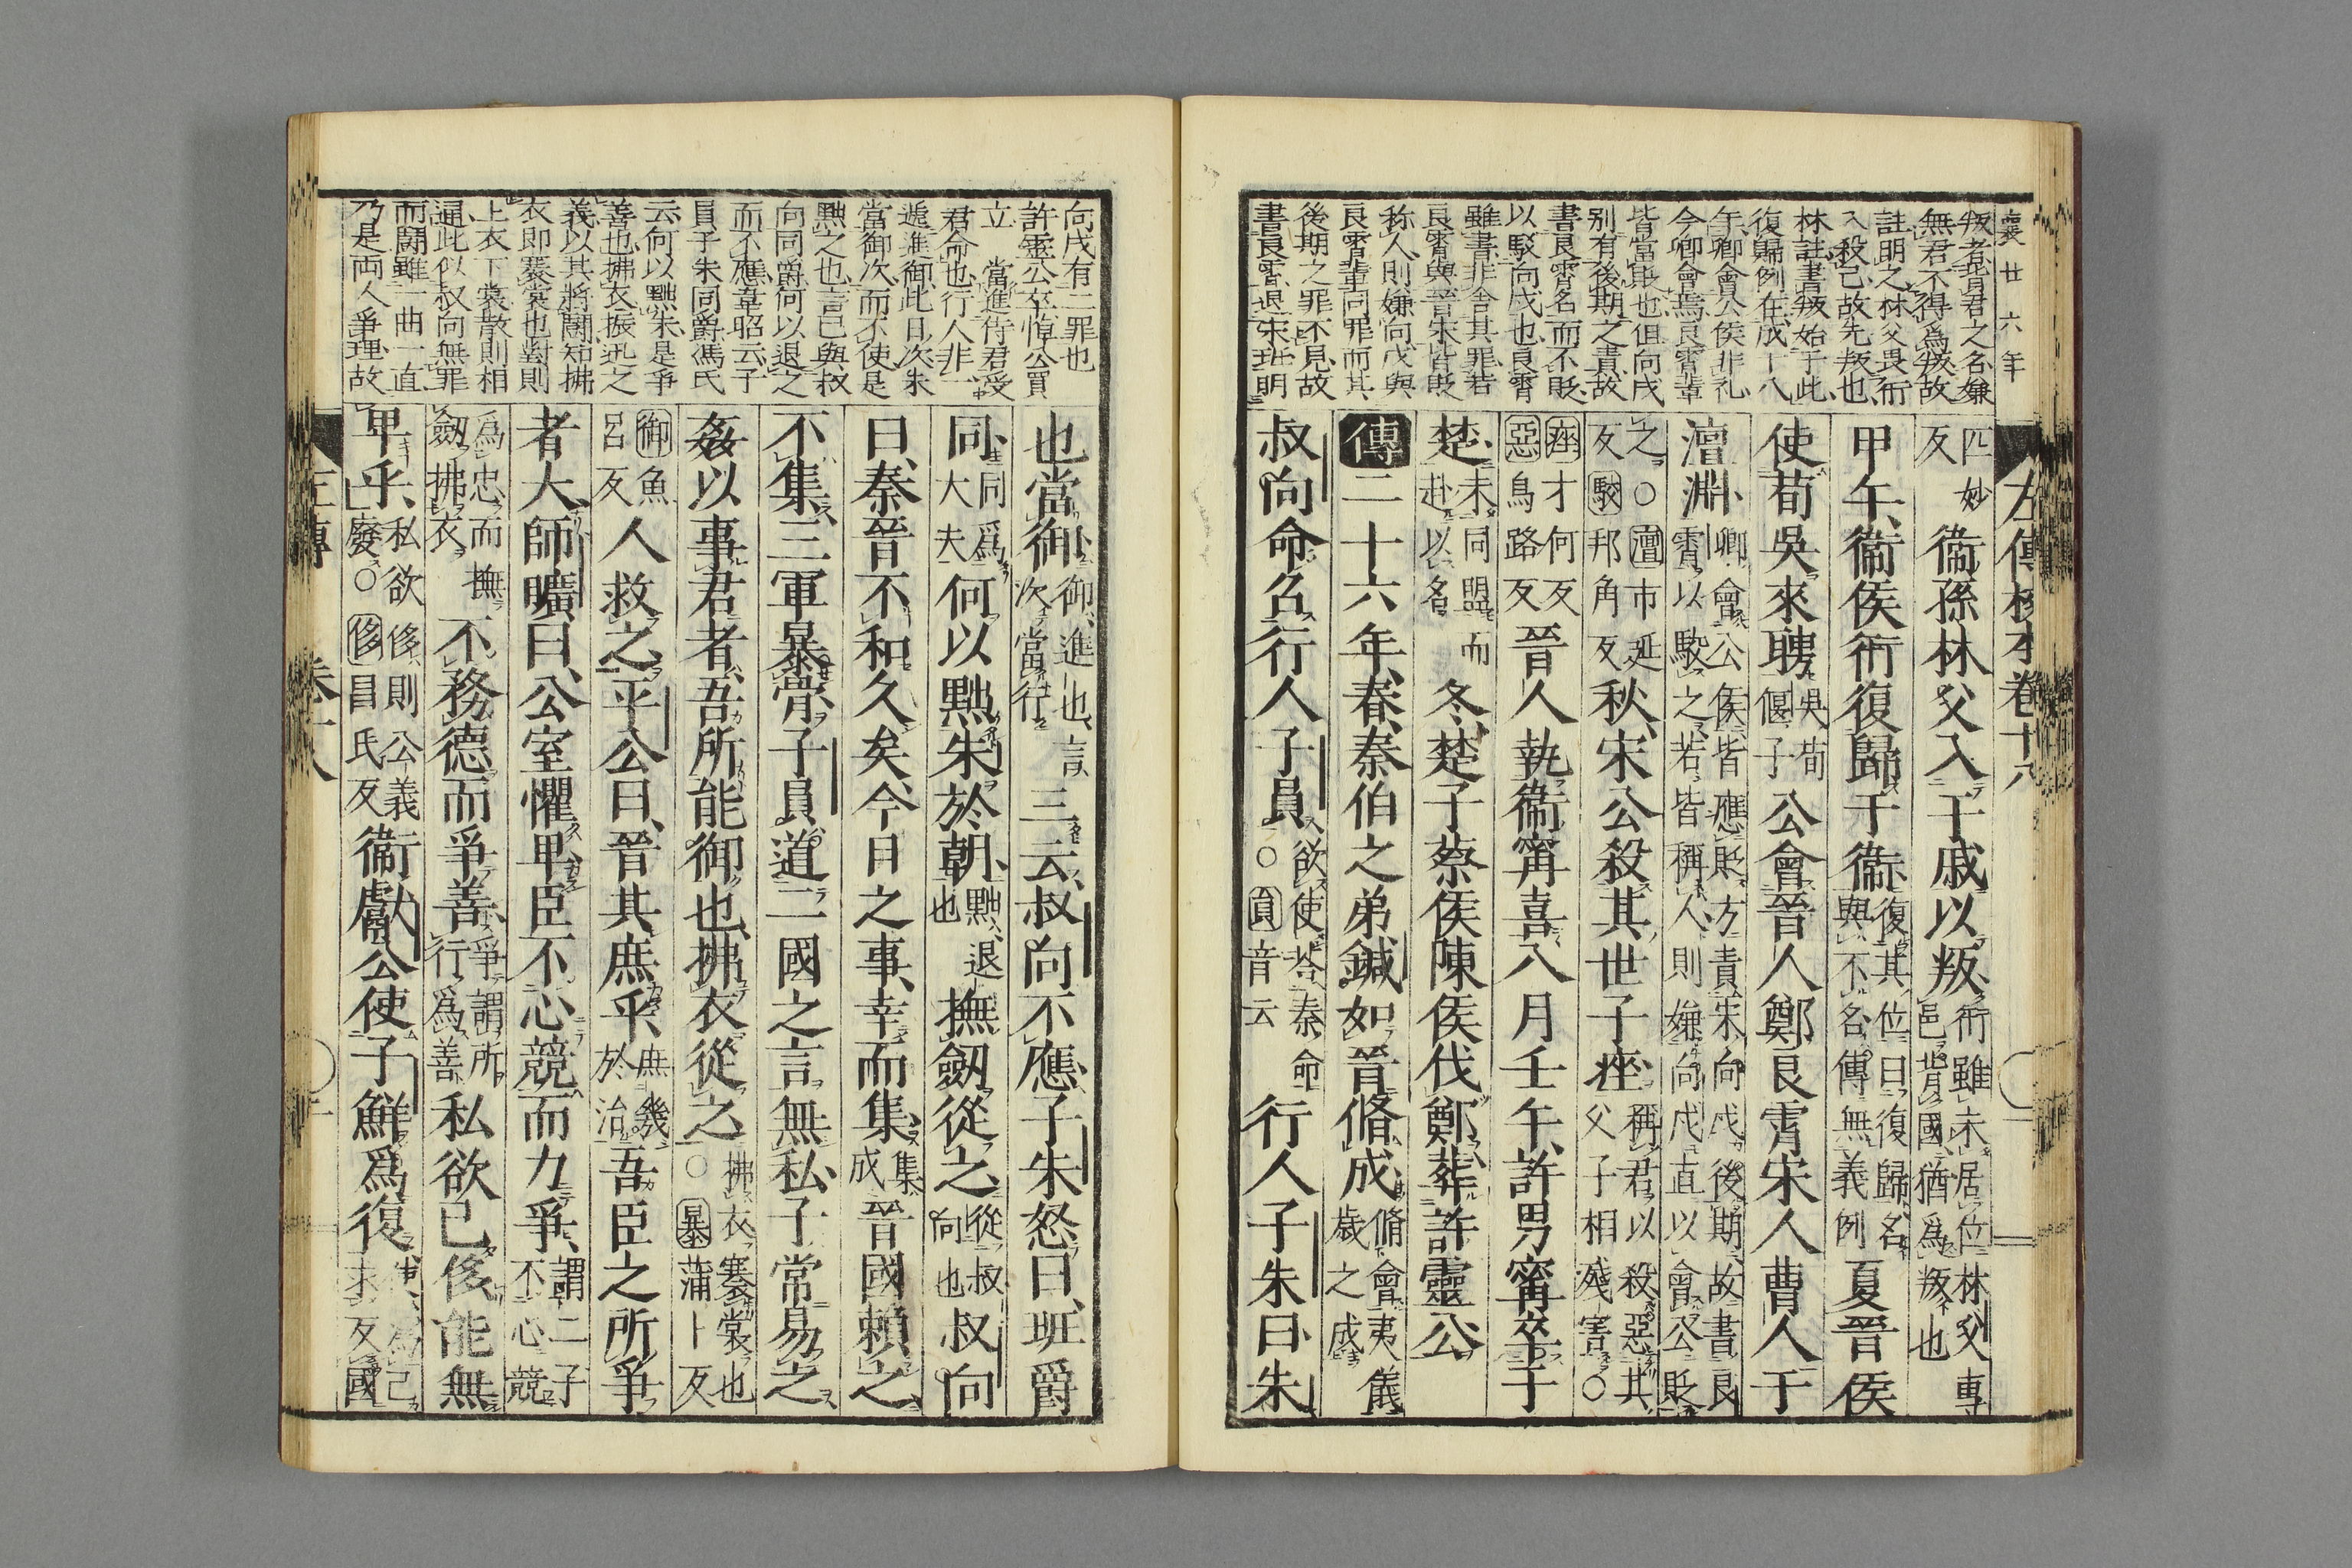 襄廿六年
叛者背君之名嫌
無君不得爲叛故
註明之林父畏衎
入殺己故先叛也
林註書叛始于此
復歸例在成十八
年卿會公侯非礼
今卿會焉良霄輩
皆當貶也但向戌
別有後期之責故
書良霄名而不貶
以駁向戌也良霄
雖書非舍其罪若
良霄與晉宋皆貶
称人則嫌向戌與
良霄輩同罪而其
後期之罪不見故
書良霄退宋班明
左傳校本卷十八
匹妙反衞孫林父入于戚以叛衎雖未居位林父專邑背國猶爲叛也
甲午衞侯衎復歸于衞復其位曰復歸名與不名傳無義例夏晉侯
使荀吳來聘吳荀偃子公會晉人鄭良霄宋人曹人于
澶淵卿會公侯皆應貶方責宋向戌後期故書良霄以駁之若皆稱人則嫌向戌直以會公貶
之○澶市延反駁邦角反秋宋公殺其世子座稱君以殺惡其父子相殘害○
座才何反惡烏路反晉人執衞甯喜八月壬午許男甯卒于
楚未同盟而赴以名冬楚子蔡侯陳侯伐鄭葬許靈公
傳二十六年春秦伯之弟鍼如晉脩成脩會夷儀歲之成
叔向命召行人子員欲使荅秦命○員音云行人子朱曰朱
向戌有二罪也
許靈公卒悼公買
立　當進侍君受
君命也行人非一
遞進御此日次朱
當御次而不使是
黜之也言已與叔
向同爵何以退之
而不應韋昭云子
員子朱同爵馮氏
云何以黜朱是爭
善也拂衣振迅之
義以其將鬪知拂
衣即褰裳也對則
上衣下裳散則相
通此似叔向無罪
而鬪雖一曲一直
乃是両人爭理故
也當御御進也言次當行三云叔向不應子朱怒曰班爵
同同爲大夫何以黜朱於朝黜退也撫劒從之從叔向也叔向
曰秦晉不和久矣今日之事幸而集集成晉國賴之
不集三軍暴骨子員道二國之言無私子常易之
姦以事君者吾所能御也拂衣從之拂衣褰裳也○暴蒲卜反
御魚呂反人救之平公曰晉其庶乎庶幾於治吾臣之所爭
者大師曠曰公室懼卑臣不心競而力爭謂二子不心競
爲忠而撫劒拂衣不務德而爭善爭謂所行爲善私欲已侈能無
卑乎私欲侈則公義廢○侈昌氏反衞獻公使子鮮爲復使爲己求反國